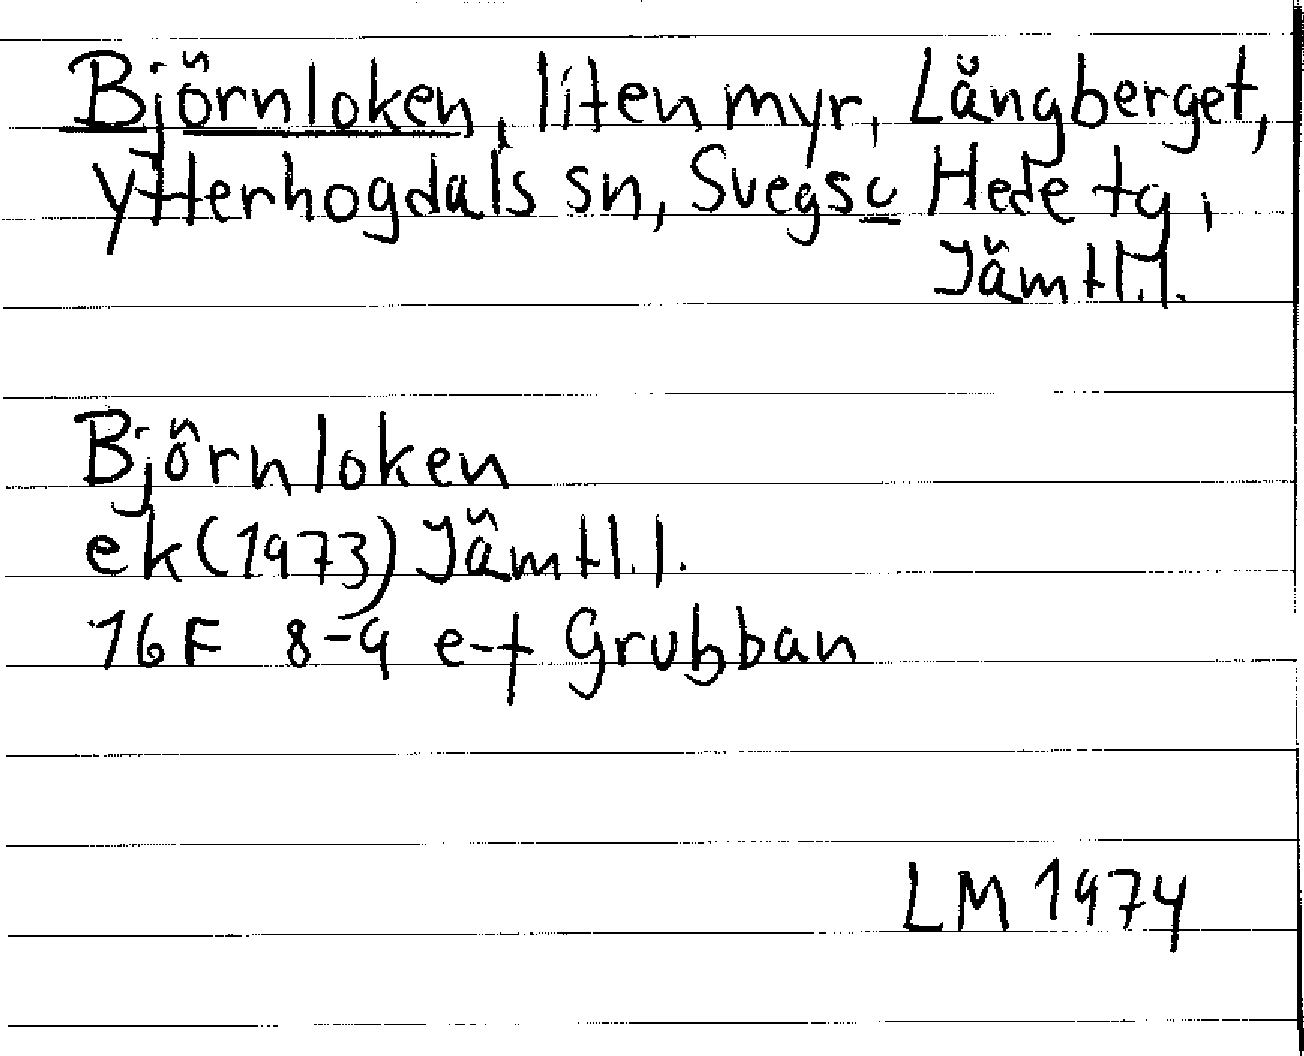 Björnloken, liten myr, Långberget,
Ytterhogdals sn, Svegs o Hede tg,
Jämtl.l.
Björnloken
ek (1973) Jämtl.l.
16F 8-9 e-f Grubban
LM 1974